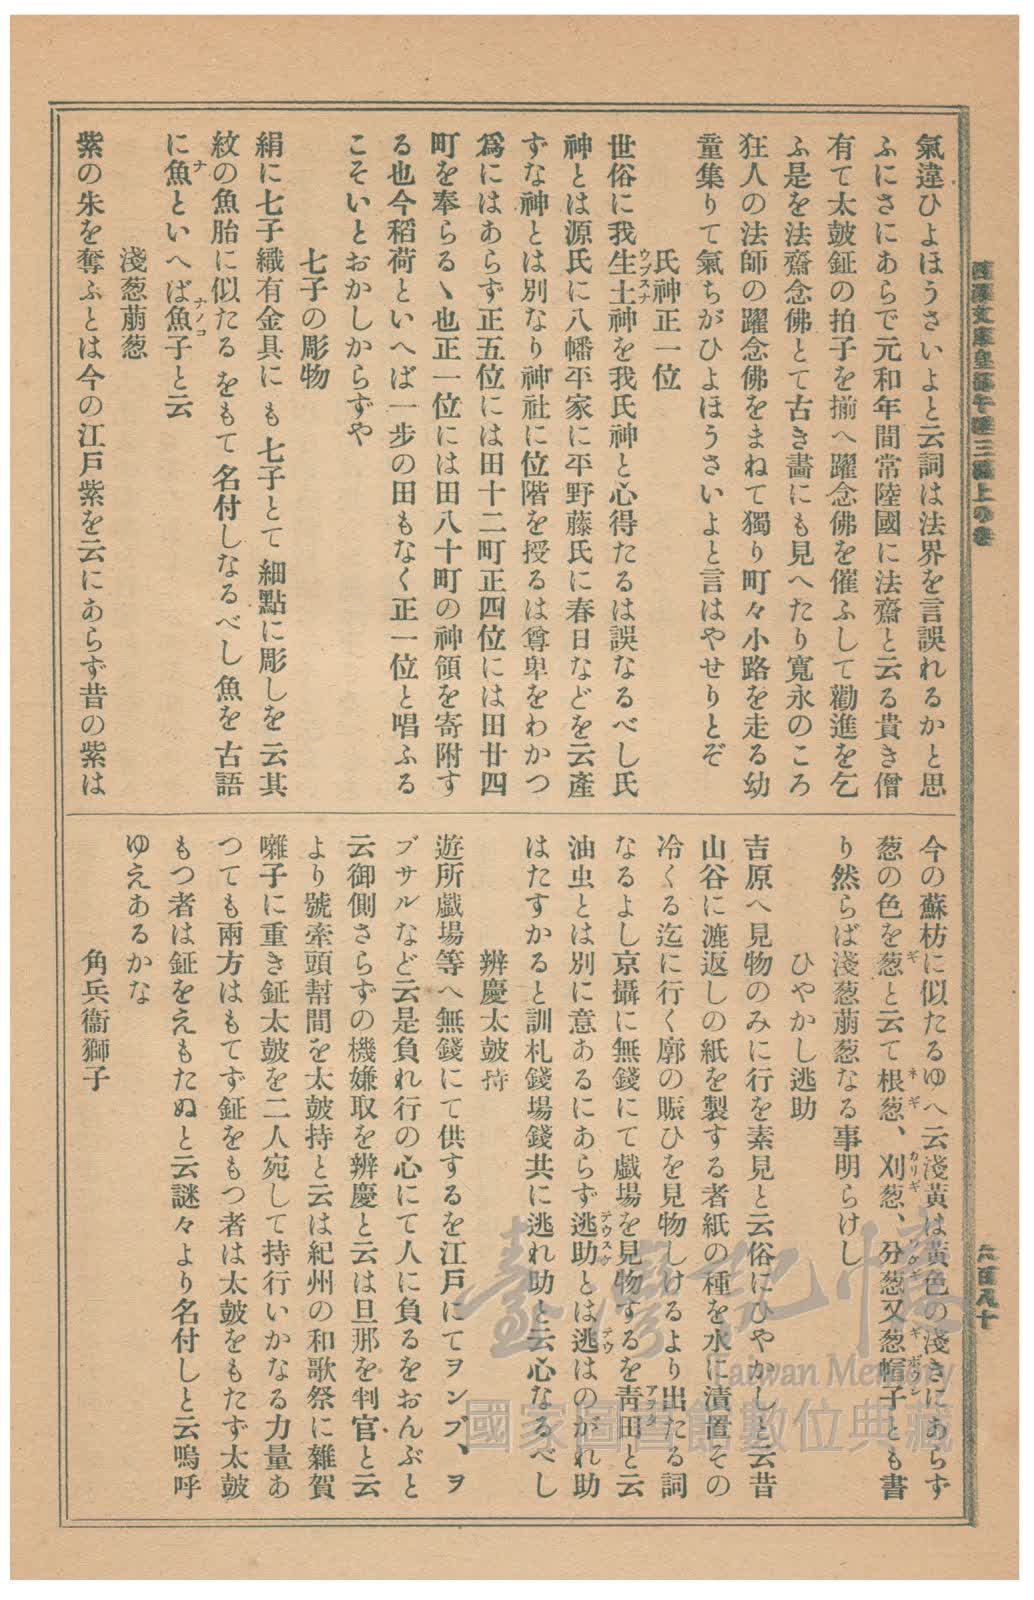 氣違ひよほうさいよと云詞は法界を言誤れるかと思
ふにさにあらで元和年間常陸國に法齋と云る貴き僧
有て太皷鉦の拍子を揃へ躍念佛を催ふして勸進を乞
ふ是を法齋念佛とて古き畵にも見へたり寬永のころ
狂人の法師の躍念佛をまねて獨り町々小路を走る幼
童集りて氣ちがひよほうさいよと言はやせりとぞ
氏神正一位
世俗に我生土神を我氏神と心得たるは誤なるべし氏
ウブスナ
神とは源氏に八幡平家に平野藤氏に春日などを云產
すな神とは別なり神社に位階を授るは尊卑をわかつ
爲にはあらず正五位には田十二町正四位には田廿四
町を奉らるゝ也正一位には田八十町の神領を寄附す
る也今稻荷といへば一步の田もなく正一位と唱ふる
こそいとおかしからずや
七子の彫物
絹に七子織有金具にも七子とて細點に彫しを云其
紋の魚胎に似たるをもて名付しなるべし魚を古語
に魚といへば魚子と云
ナ
ナノコ
淺葱萠葱
紫の朱を奪ふとは今の江戸紫を云にあらず昔の紫は
今の蘇枋に似たるゆへ云淺黃は黃色の淺きにあらず
葱の色を葱と云て根葱、刈葱、分葱又葱帽子とも書
ギ
ネギ
カリギ
ワケギ
ギボウシ
り然らば淺葱萠葱なる事明らけし
ひやかし逃助
吉原へ見物のみに行を素見と云俗にひやかしと云昔
山谷に漉返しの紙を製する者紙の種を水に漬置その
冷くる迄に行く廓の賑ひを見物しけるより出たる詞
なるよし京攝に無錢にて戲場を見物するを靑田と云
アヲタ
油虫とは別に意あるにあらず逃助とは逃はのがれ助
テウスケ
テウ
はたすかると訓札錢場錢共に逃れ助と云心なるべし
辨慶太皷持
遊所戲場等へ無錢にて供するを江戸にてヲンブ、ヲ
ブサルなど云是負れ行の心にて人に負るをおんぶと
云御側さらずの機嫌取を辨慶と云は旦那を判官と云
より號牽頭幇間を太皷持と云は紀州の和歌祭に雜賀
囃子に重き鉦太皷を二人宛して持行いかなる力量あ
つても兩方はもてず鉦をもつ者は太皷をもたず太皷
もつ者は鉦をえもたぬと云謎々より名付しと云嗚呼
ゆえあるかな
角兵衞獅子
臺灣記憶
Taiwan Memory
國家圖書館數位典藏